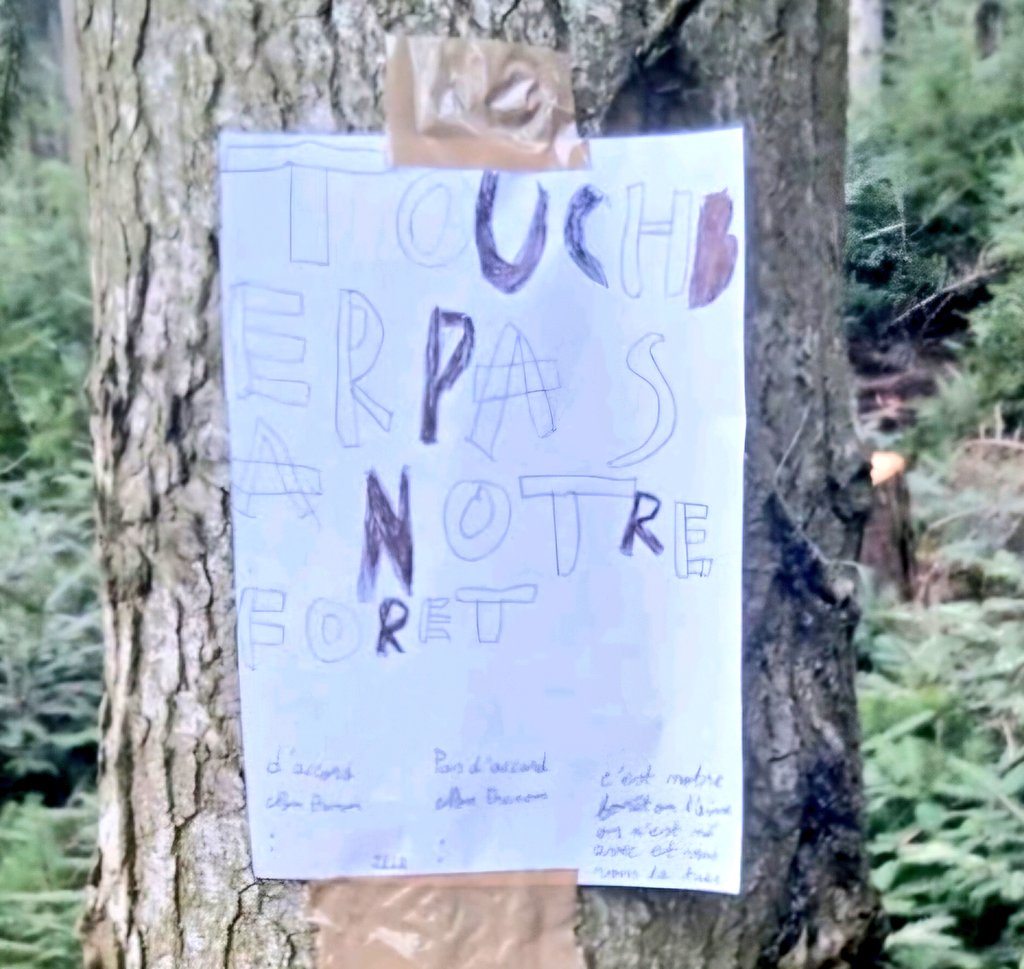 TOUCHB
ER PAS
A NOTRE
FORET
d'accord
Pas d'accord
c'est notre
forêt on l'aime
on n'est né
avec et